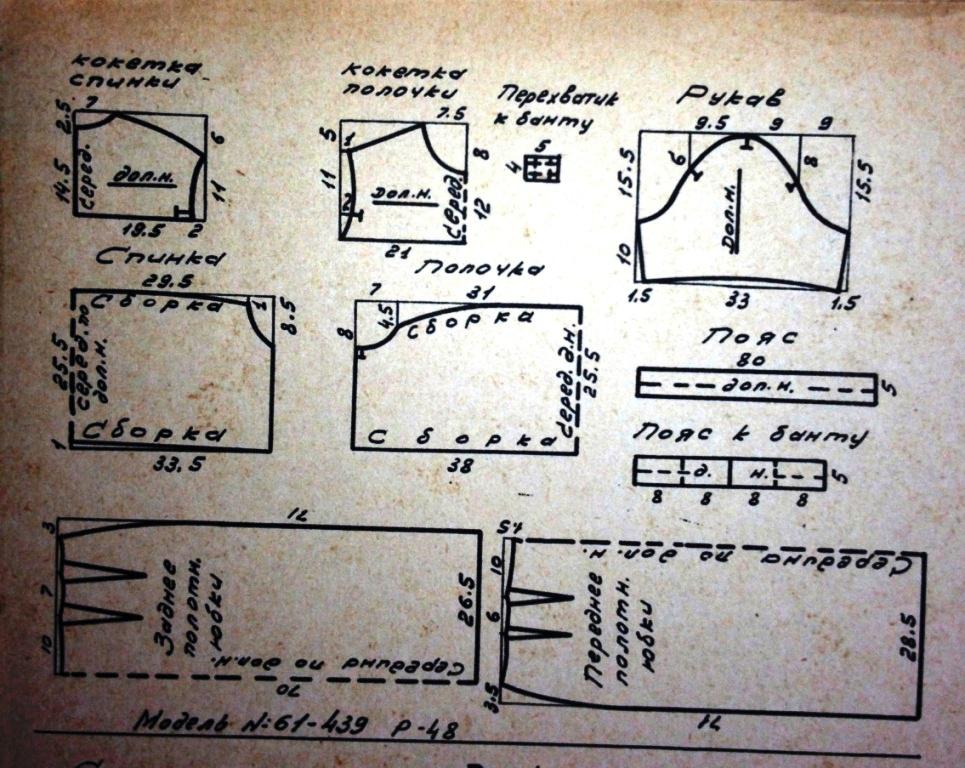 кокетка
спинки
2.5 7
6
14.5
серед.
дол.н.
11
19.5 2
кокетка
полочки
7.5
5 1
8
11
дол.н.
2
серед.
12
21
Перехватик
к банту
5
4
Рукав
9.5 9 9
15.5
6
8
15.5
дол.н.
10
1.5 33 1.5
Спинка
29.5
Сборка
1
8.5
25.5
серед. по
дол.н.
Сборка
1
33.5
Полочка
7 31
8
4.5
Сборка
серед. д.н.
25.5
Сборка
38
Пояс
80
дол.н.
5
Пояс к банту
д. н.
5
8 8 8 8
3
71
7
10
Заднее
полотн.
юбки
26.5
Середина по дол.н.
70
1.5
Середина по дол. н.
10
6
Переднее
полотн.
юбки
28.5
3.5
71
Модель №:61-439 р-48